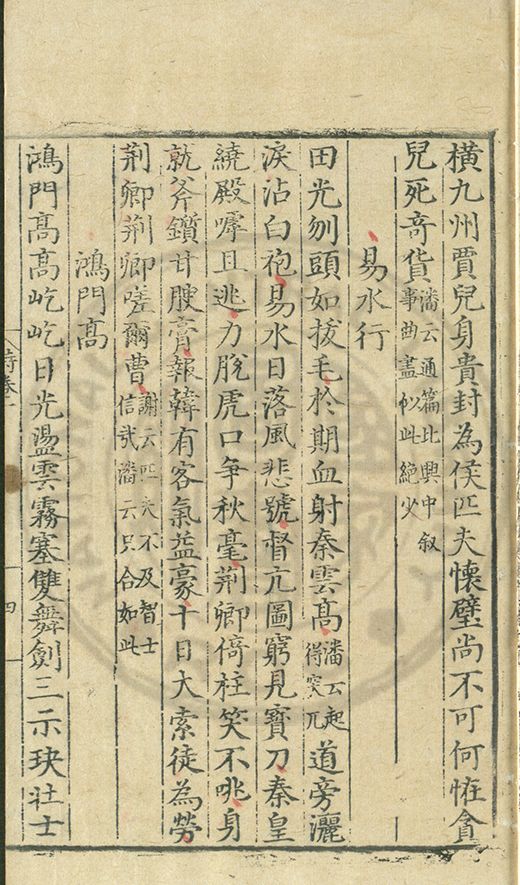 橫九州賈兒身貴封為侯匹夫懷璧尚不可何恠貪
兒死竒貨潘云通篇比興中叙事曲盡似此絕少
易水行
田光刎頭如拔毛於期血射秦雲高潘云起得突兀道旁灑
淚沾白袍易水日落風悲號督亢圖窮見寳刀秦皇
繞殿嘑且逃力脫虎口爭秋毫荆卿倚柱笑不咷身
就斧鑕甘腴膏報韓有客氣益豪十日大索徒為勞
荆卿荆卿嗟爾曹謝云匹夫不及智士信哉潘云只合如此
鴻門高
鴻門高高屹屹日光盪雲霧塞雙舞劍三示玦壮士
詩卷一
四